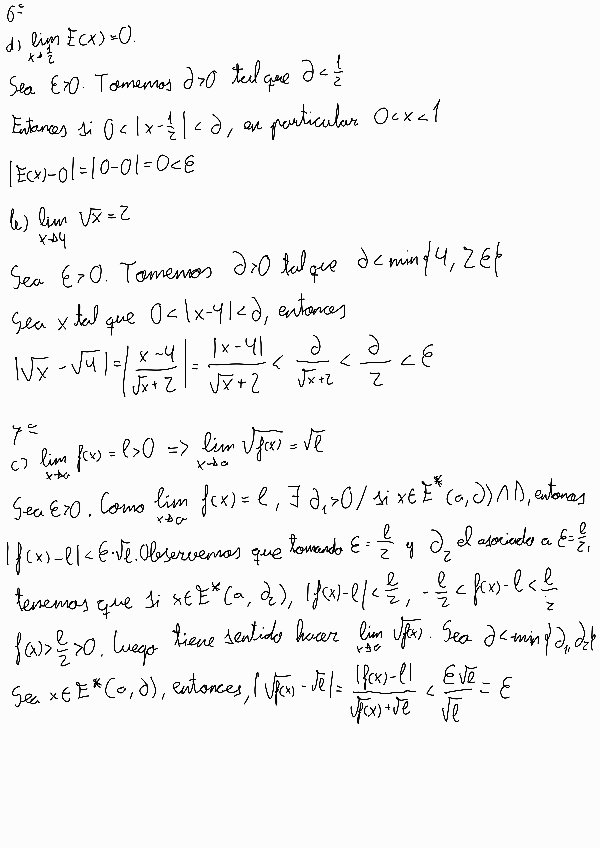 6º
d) lim E(x)=0.
x→1/2
Sea ε>0. Tomemos ∂>0 tal que ∂<1/2
Entonces si 0<|x-1/2|<∂, en particular 0<x<1
|E(x)-0|=|0-0|=0<ε
b) lim √x=2
x→4
Sea ε>0. Tomemos ∂>0 tal que ∂<min{4, 2ε}
Sea x tal que 0<|x-4|<∂, entonces
|√x-√4|=|(x-4)/(√x+2)|=|x-4|/(√x+2)<∂/(√x+2)<∂/2<ε
7º
c) lim f(x)=l>0 => lim √f(x)=√l
x→a x→a
Sea ε>0. Como lim f(x)=l, ∃ ∂₁>0/ si x∈E*(a,∂)∩D, entonces
x→a
|f(x)-l|<ε·√l. Observemos que tomando ε=l/2 y ∂₂ el asociado a ε=l/2,
tenemos que si x∈E*(a,∂₂), |f(x)-l|<l/2, -l/2<f(x)-l<l/2
f(x)>l/2>0. Luego tiene sentido hacer lim √f(x). Sea ∂<min{∂₁,∂₂}
x→a
Sea x∈E*(a,∂), entonces, |√f(x)-√l|=|f(x)-l|/(√f(x)+√l)<ε√l/√l=ε